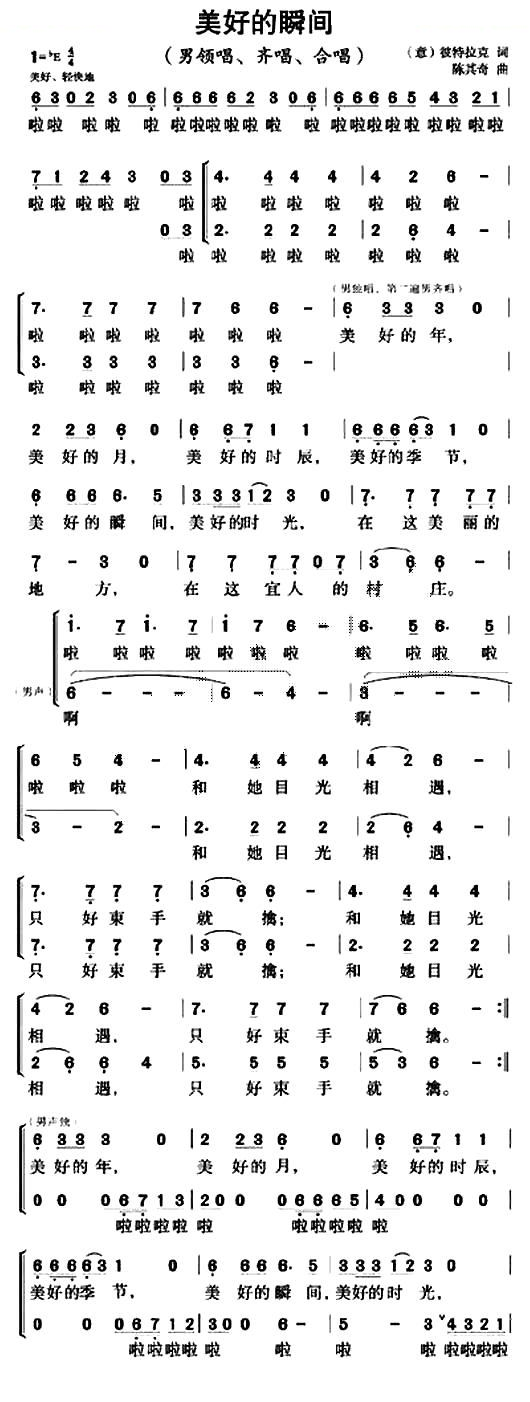 美好的瞬间
1=♭E 4/4
(男领唱、齐唱、合唱)
(意)彼特拉克 词
陈其奇 曲
美好、轻快地
6 3 0 2 3 0 6 | 6 6 6 6 2 3 0 6 | 6 6 6 6 6 5 4 3 2 1 |
啦啦 啦啦 啦 啦啦啦啦啦 啦 啦啦啦啦啦啦啦啦啦
7 1 2 4 3 0 3 | 4. 4 4 4 | 4 2 6 - |
啦啦啦啦啦 啦 啦 啦啦 啦 啦 啦 啦
0 3 | 2. 2 2 2 | 2 6 4 - |
啦 啦 啦啦 啦 啦 啦 啦
(男独唱、第二遍男齐唱)
7. 7 7 7 | 7 6 6 - | 6 3 3 3 3 0 |
啦 啦 啦 啦 啦 啦 啦 美 好的年，
3. 3 3 3 | 3 3 6 - |
啦 啦 啦 啦 啦 啦 啦
2 2 3 6 0 | 6 6 7 1 1 | 6 6 6 6 3 1 0 |
美 好的月， 美 好的时辰， 美好的季 节，
6 6 6 6. 5 | 3 3 3 3 1 2 3 0 | 7. 7 7 7 7 |
美好的瞬 间，美好的时 光， 在 这美丽的
7 - 3 0 | 7 7 7 7 0 7 | 3 6 6 - |
地 方， 在 这 宜人 的 村 庄。
1. 7 1. 7 | 1 7 6 - | 6. 5 6. 5 |
啦 啦 啦 啦 啦 啦 啦 啦 啦 啦 啦
(男声) 6 - - - | - 6 - 4 - | 3 - - - |
啊 啊
6 5 4 - | 4. 4 4 4 | 4 2 6 - |
啦 啦 啦 和 她目光 相 遇，
3 - 2 - | 2. 2 2 2 | 2 6 4 - |
和 她目光 相 遇，
7. 7 7 7 | 3 6 6 - | 4. 4 4 4 |
只 好束手 就 擒； 和 她目光
7. 7 7 7 | 3 6 6 - | 2. 2 2 2 |
只 好束手 就 擒； 和 她目光
4 2 6 - | 7. 7 7 7 | 7 6 6 - :‖
相 遇， 只 好束手 就 擒。
2 6 6 4 | 5. 5 5 5 | 5 3 6 - :‖
相 遇， 只 好束手 就 擒。
(男声独)
6 3 3 3 3 0 | 2 2 3 6 0 | 6 6 7 1 1 |
美 好的年， 美 好的月， 美 好的时辰，
0 0 0 6 7 1 3 | 2 0 0 0 6 6 6 6 5 | 4 0 0 0 0 |
啦啦啦啦 啦 啦啦啦啦 啦
6 6 6 6 3 1 0 | 6 6 6 6. 5 | 3 3 3 1 2 3 0 |
美好的季 节， 美 好的瞬 间，美好的时 光，
0 0 0 6 7 1 2 | 3 0 0 6 - | 5 - 3 ˅ 4 3 2 1 |
啦啦啦啦 啦 啦 啦 啦 啦啦啦啦